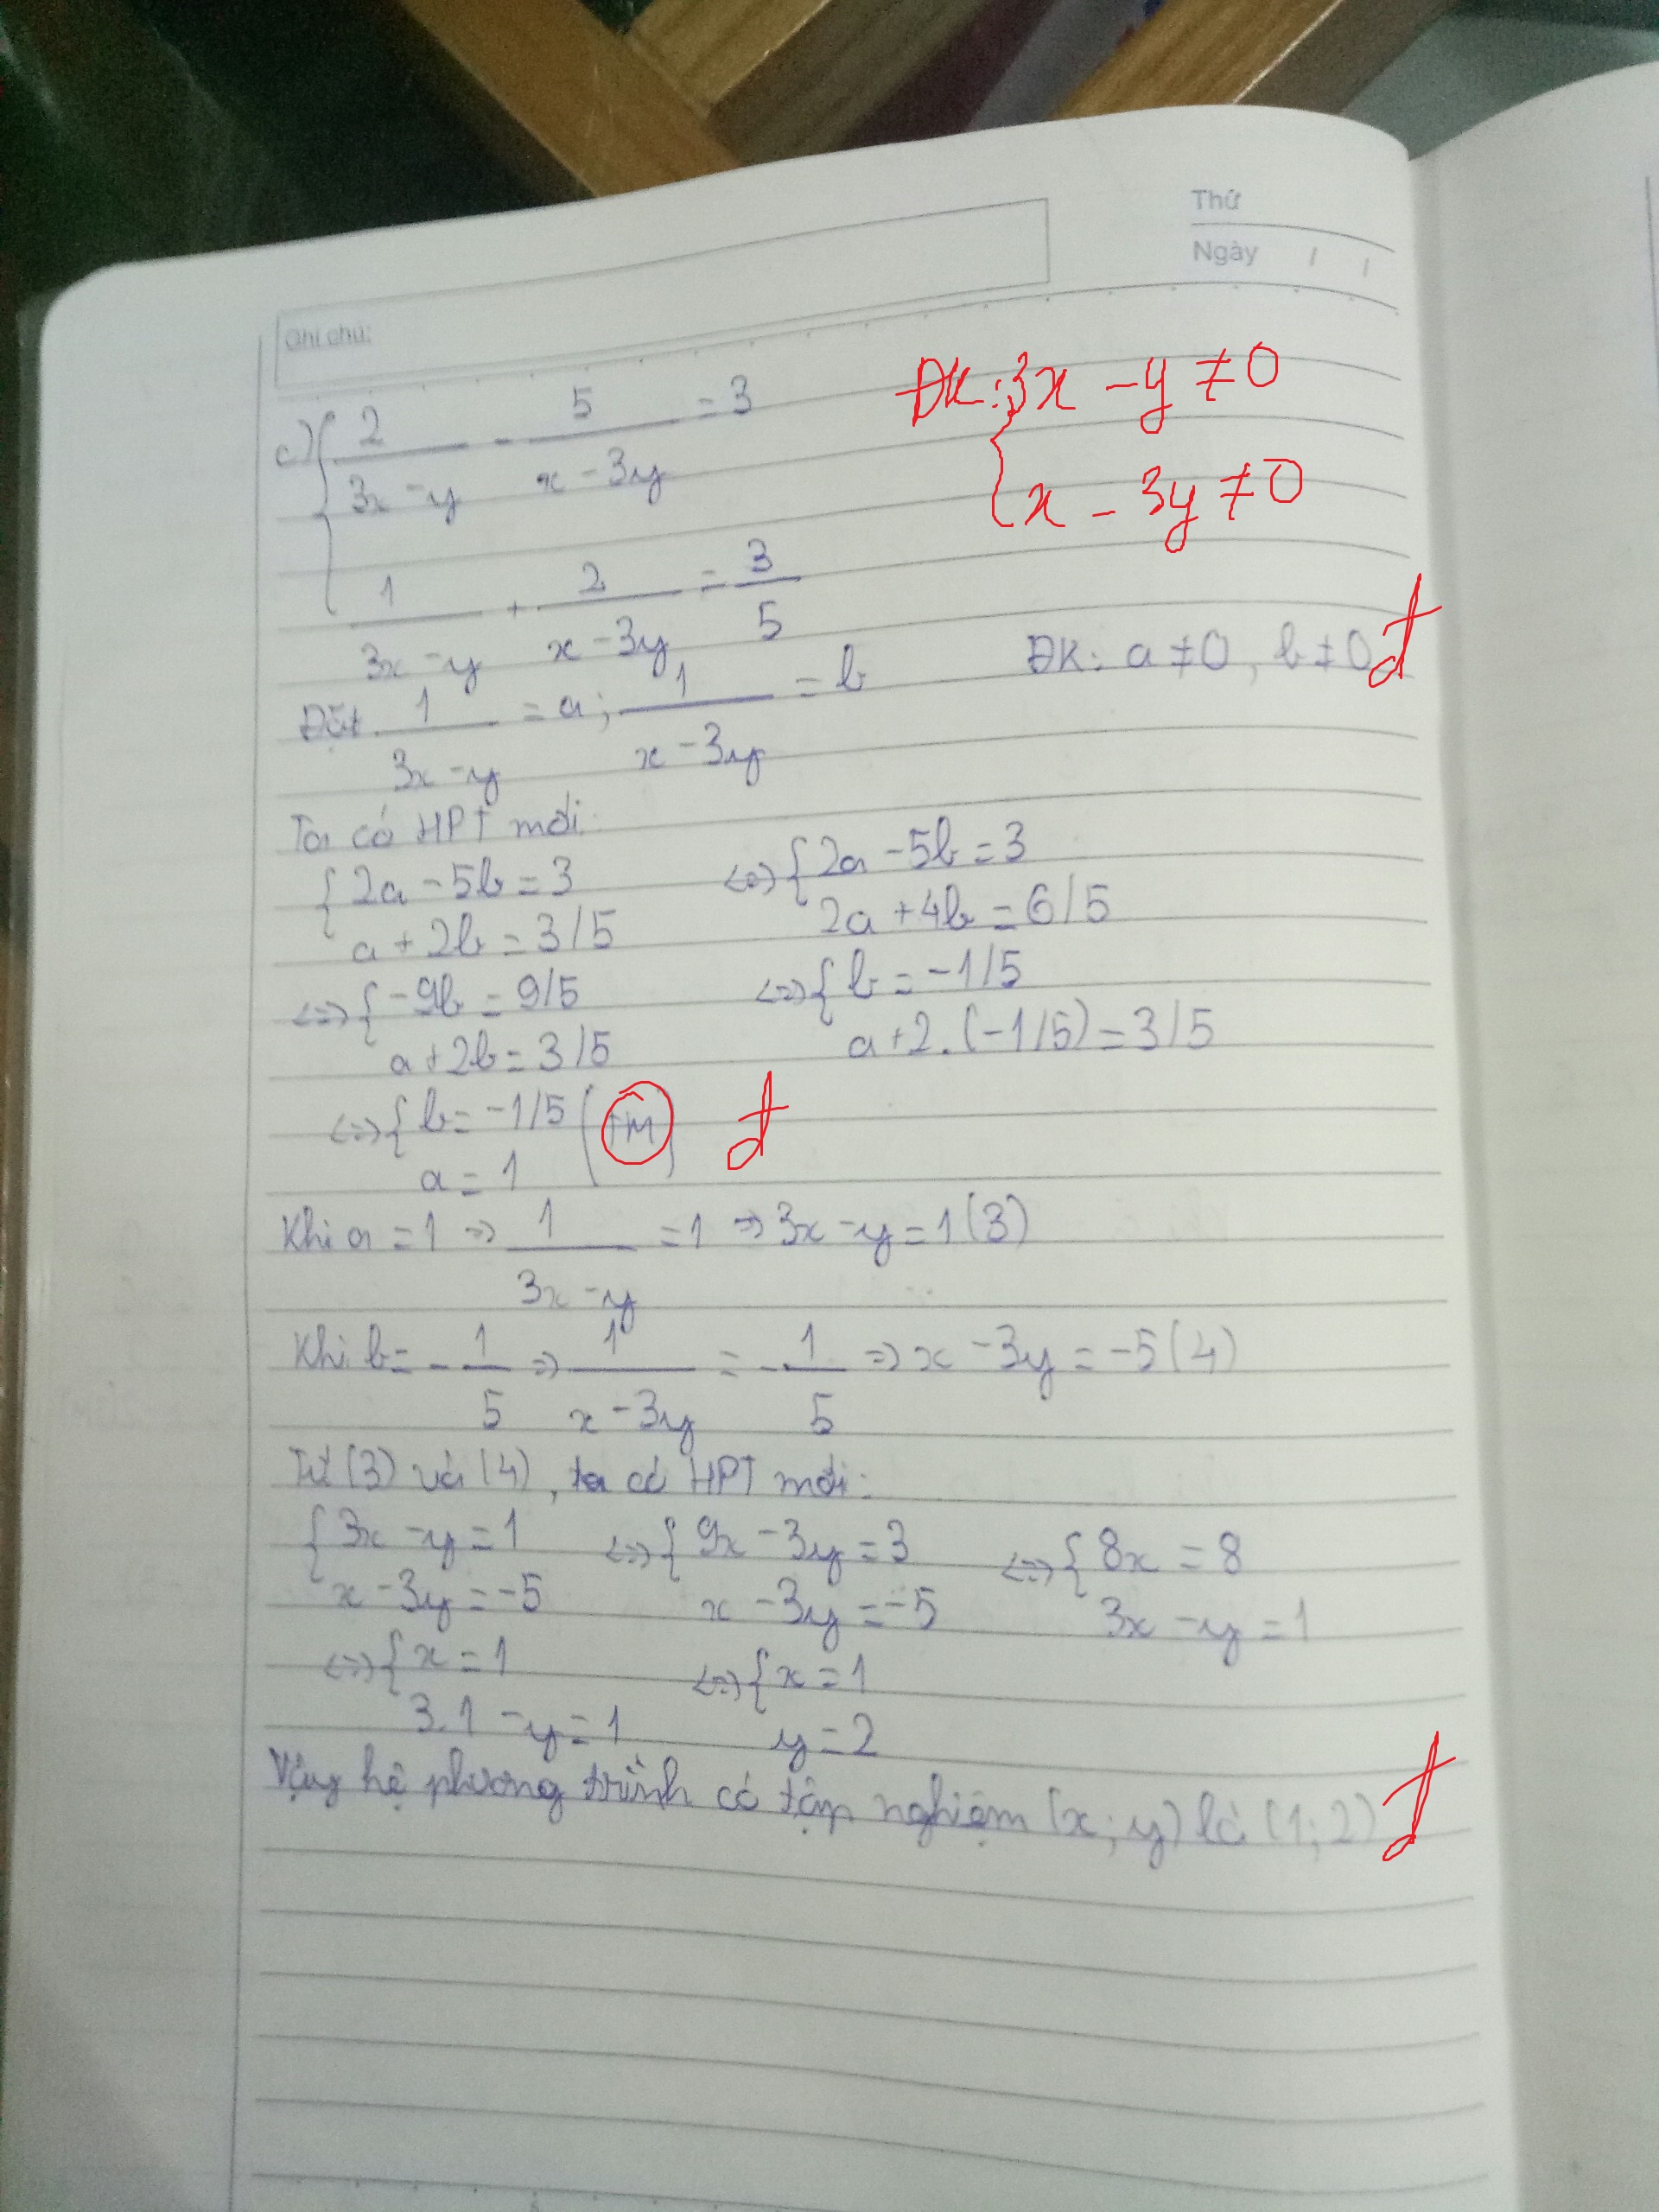 Thứ
Ngày / /
Ghi chú:
c) { 2/(3x - y) - 5/(x - 3y) = 3
ĐK: { 3x - y ≠ 0
x - 3y ≠ 0
1/(3x - y) + 2/(x - 3y) = 3/5
Đặt 1/(3x - y) = a; 1/(x - 3y) = b ĐK: a ≠ 0, b ≠ 0 đ
Ta có HPT mới:
{ 2a - 5b = 3 <=> { 2a - 5b = 3
a + 2b = 3/5 2a + 4b = 6/5
<=> { -9b = 9/5 <=> { b = -1/5
a + 2b = 3/5 a + 2.(-1/5) = 3/5
<=> { b = -1/5 (TM) đ
a = 1
Khi a = 1 => 1/(3x - y) = 1 => 3x - y = 1 (3)
Khi b = -1/5 => 1/(x - 3y) = -1/5 => x - 3y = -5 (4)
Từ (3) và (4), ta có HPT mới:
{ 3x - y = 1 <=> { 9x - 3y = 3 <=> { 8x = 8
x - 3y = -5 x - 3y = -5 3x - y = 1
<=> { x = 1 <=> { x = 1
3.1 - y = 1 y = 2
Vậy hệ phương trình có tập nghiệm (x; y) là (1; 2) đ